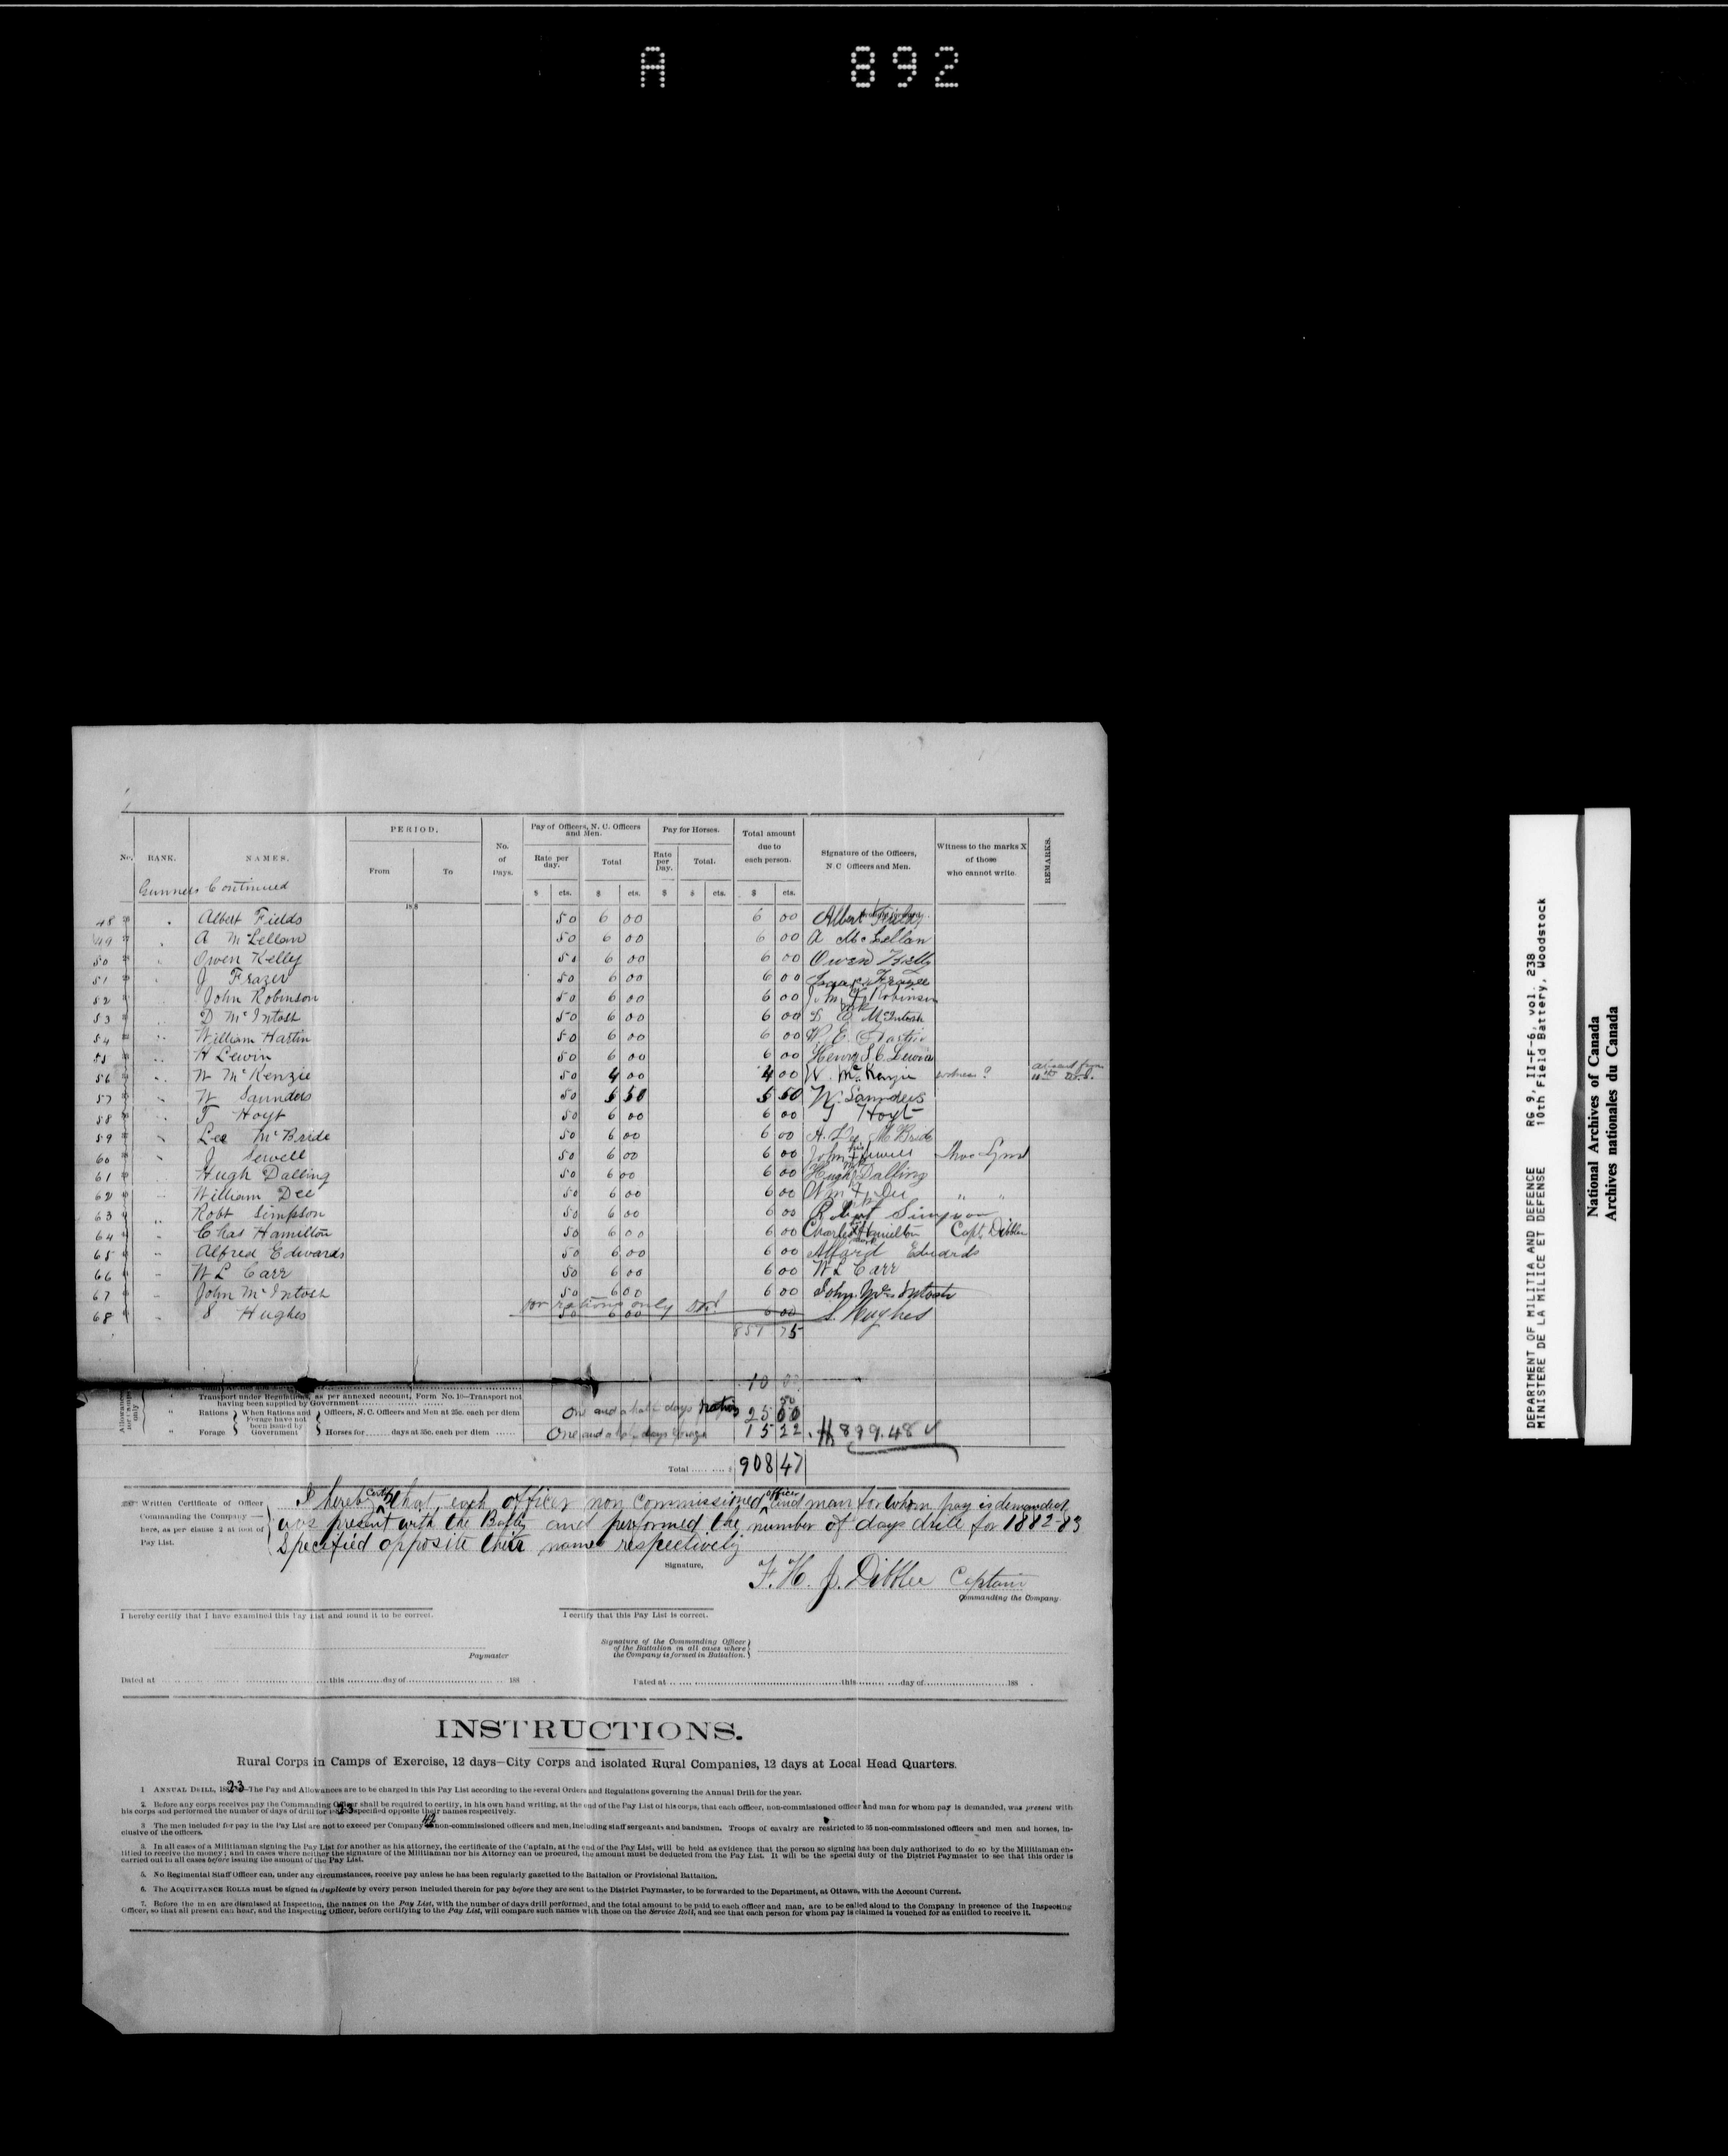 A 892
No. RANK. NAMES. PERIOD, From To No. of Days. Pay of Officers, N. C. Officers and Men. Rate per day. Total Pay for Horses. Rate per Day. Total. Total amount due to each person. Signature of the Officers, N. C Officers and Men. Witness to the marks X of those who cannot write. REMARKS.
$ cts. $ cts. $ $ cts. $ cts.
Gunners Continued
48 Albert Fields 50 6 00 6 00 Albert Fields
49 A McLellan 50 6 00 6 00 A McLellan
50 Owen Kelly 50 6 00 6 00 Owen Kelly
51 J Frazer 50 6 00 6 00
52 John Robinson 50 6 00 6 00 Robinson
53 D McIntosh 50 6 00 6 00 D McIntosh
54 William Hartin 50 6 00 6 00
55 H Lewin 50 6 00 6 00 Henry Lewin
56 W McKenzie 50 4 00 4 00 W. McKenzie witness?
57 W Saunders 50 5 50 5 50 W. Saunders
58 T Hoyt 50 6 00 6 00 T Hoyt
59 Lee McBride 50 6 00 6 00 H. Lee McBride
60 J Sewell 50 6 00 6 00 John Sewell
61 Hugh Dalling 50 6 00 6 00 Hugh Dalling
62 William Dee 50 6 00 6 00 Wm Dee " "
63 Robt Simpson 50 6 00 6 00 Robert Simpson
64 Chas Hamilton 50 6 00 6 00 Charles Hamilton Capt. Dibblee
65 Alfred Edwards 50 6 00 6 00 Alfred Edwards
66 W L Carr 50 6 00 6 00 W L Carr
67 John McIntosh 50 6 00 6 00 John McIntosh
for rations only
68 S Hughes 50 6 00 6 00 S. Hughes
857 75
10 00
Transport under Regulations, as per annexed account, Form No. 10—Transport not having been supplied by Government
" Rations When Rations and Forage have not been issued by Government Officers, N. C. Officers and Men at 25c. each per diem One and a half days rations 25 50
" Forage Horses for days at 35c. each per diem One and a half days forage 15 22 $899.48
Total $ 908 47
Written Certificate of Officer Commanding the Company — here, as per clause 2 at foot of Pay List.
I hereby certify that each officer non commissioned officer and man for whom pay is demanded,
was present with the Batty and performed the number of days drill for 1882-83
specified opposite their names respectively
Signature, F. H. J. Dibblee Captain
Commanding the Company.
I hereby certify that I have examined this Pay List and found it to be correct.
I certify that this Pay List is correct.
Paymaster
Signature of the Commanding Officer of the Battalion in all cases where the Company is formed in Battalion.
Dated at this day of 188 .
Dated at this day of 188 .
INSTRUCTIONS.
Rural Corps in Camps of Exercise, 12 days—City Corps and isolated Rural Companies, 12 days at Local Head Quarters.
1 ANNUAL DRILL, 1882-3—The Pay and Allowances are to be charged in this Pay List according to the several Orders and Regulations governing the Annual Drill for the year.
2. Before any corps receives pay the Commanding Officer shall be required to certify, in his own hand writing, at the end of the Pay List of his corps, that each officer, non-commissioned officer and man for whom pay is demanded, was present with
his corps and performed the number of days of drill for 1882-3 specified opposite their names respectively.
3 The men included for pay in the Pay List are not to exceed per Company 42 non-commissioned officers and men, including staff sergeants and bandsmen. Troops of cavalry are restricted to 35 non-commissioned officers and men and horses, in-
clusive of the officers.
3. In all cases of a Militiaman signing the Pay List for another as his attorney, the certificate of the Captain, at the end of the Pay List, will be held as evidence that the person so signing has been duly authorized to do so by the Militiaman en-
titled to receive the money; and in cases where neither the signature of the Militiaman nor his Attorney can be procured, the amount must be deducted from the Pay List. It will be the special duty of the District Paymaster to see that this order is
carried out in all cases before issuing the amount of the Pay List.
5. No Regimental Staff Officer can, under any circumstances, receive pay unless he has been regularly gazetted to the Battalion or Provisional Battalion.
6. The ACQUITTANCE ROLLS must be signed in duplicate by every person included therein for pay before they are sent to the District Paymaster, to be forwarded to the Department, at Ottawa, with the Account Current.
7. Before the men are dismissed at Inspection, the names on the Pay List, with the number of days drill performed, and the total amount to be paid to each officer and man, are to be called aloud to the Company in presence of the Inspecting
Officer, so that all present can hear, and the Inspecting Officer, before certifying to the Pay List, will compare such names with those on the Service Roll, and see that each person for whom pay is claimed is vouched for as entitled to receive it.
DEPARTMENT OF MILITIA AND DEFENCE RG 9, II-F-6, vol. 238
MINISTERE DE LA MILICE ET DEFENSE 10th Field Battery, Woodstock
National Archives of Canada
Archives nationales du Canada